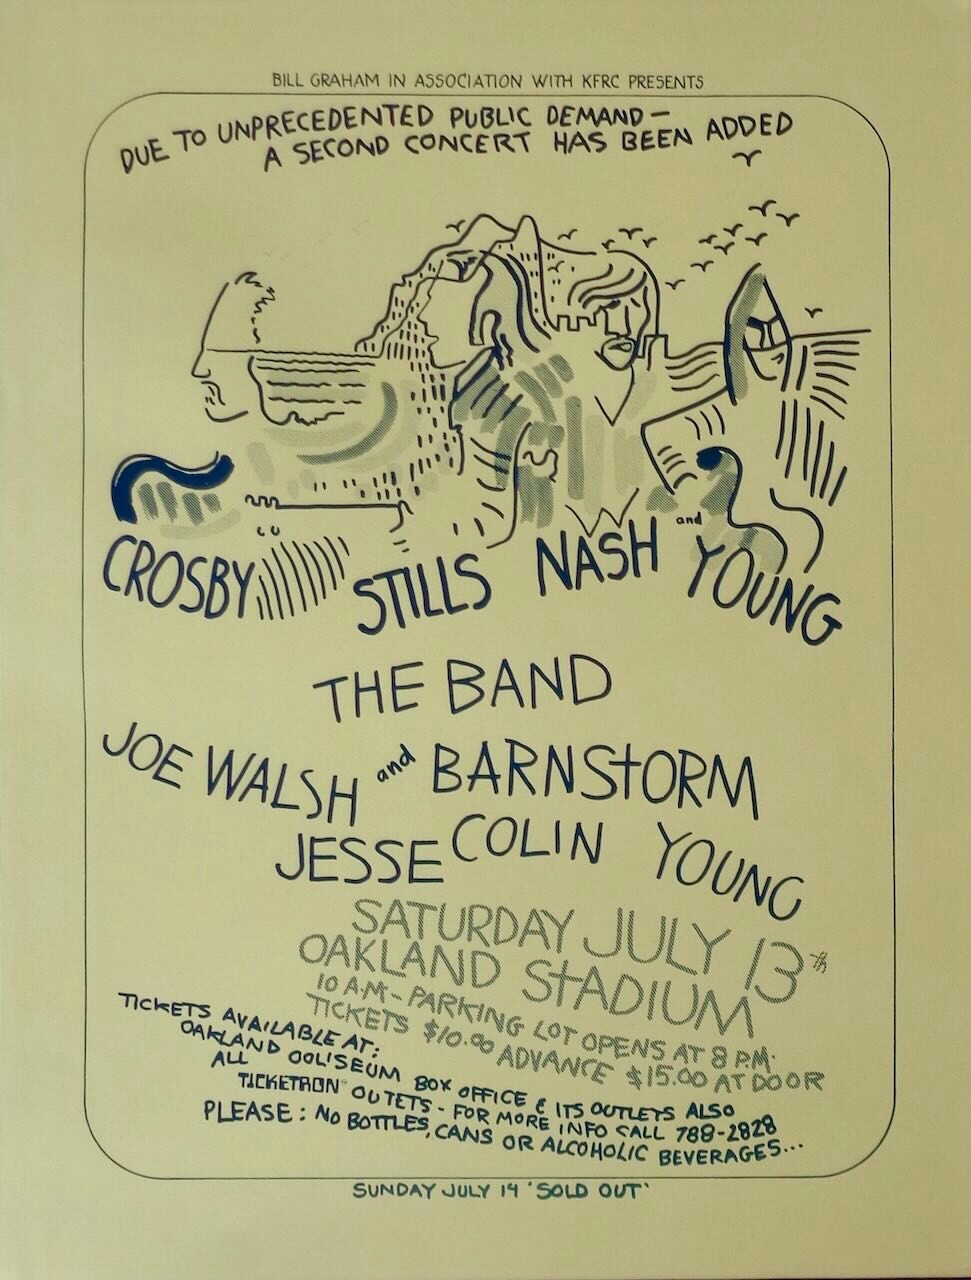 BILL GRAHAM IN ASSOCIATION WITH KFRC PRESENTS
DUE TO UNPRECEDENTED PUBLIC DEMAND—
A SECOND CONCERT HAS BEEN ADDED
CROSBY STILLS NASH and YOUNG
THE BAND
JOE WALSH and BARNSTORM
JESSE COLIN YOUNG
SATURDAY JULY 13th
OAKLAND STADIUM
10 A.M - PARKING LOT OPENS AT 8 P.M.
TICKETS $10.00 ADVANCE $15.00 AT DOOR
TICKETS AVAILABLE AT:
OAKLAND COLISEUM BOX OFFICE & ITS OUTLETS ALSO
ALL TICKETRON OUTETS - FOR MORE INFO CALL 788-2828
PLEASE: NO BOTTLES, CANS OR ALCOHOLIC BEVERAGES...
SUNDAY JULY 14 'SOLD OUT'